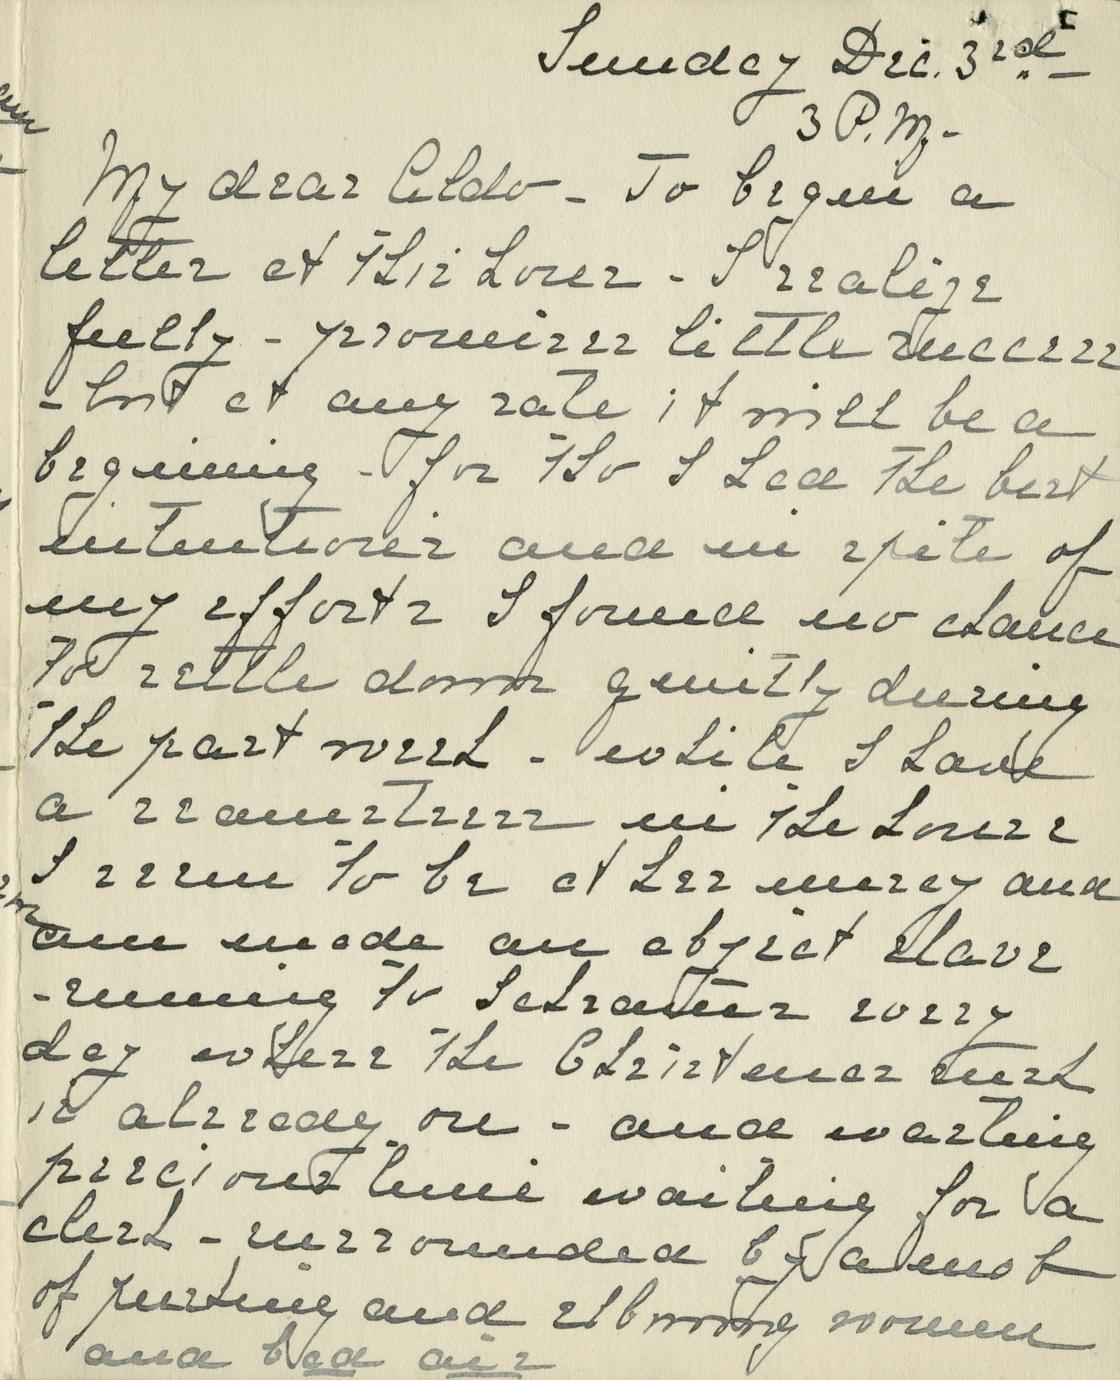 Sunday Dec. 3rd.
3 P.M.
My dear Aldo - To begin a
letter at this hour - I realize
fully - promises little success
- but at any rate it will be a
beginning - for tho I had the best
intentions and in spite of
my efforts I found no chance
to settle down quietly during
the past week - while I have
a seamstress in the house
I seem to be at her mercy and
am made an abject slave
- running to Schramms every
day where the Christmas rush
is already on - and wasting
precious time waiting for a
clerk - surrounded by a mob
of pushing and elbowing women
and bad air